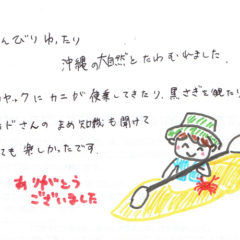 んびり ゆったり
沖縄の大自然とたわむれました。
ヤックに カニが便乗してきたり、黒さぎを観たり
ドさんの まめ知識も聞けて
ても 楽しかったです。
ありがとう
ございました